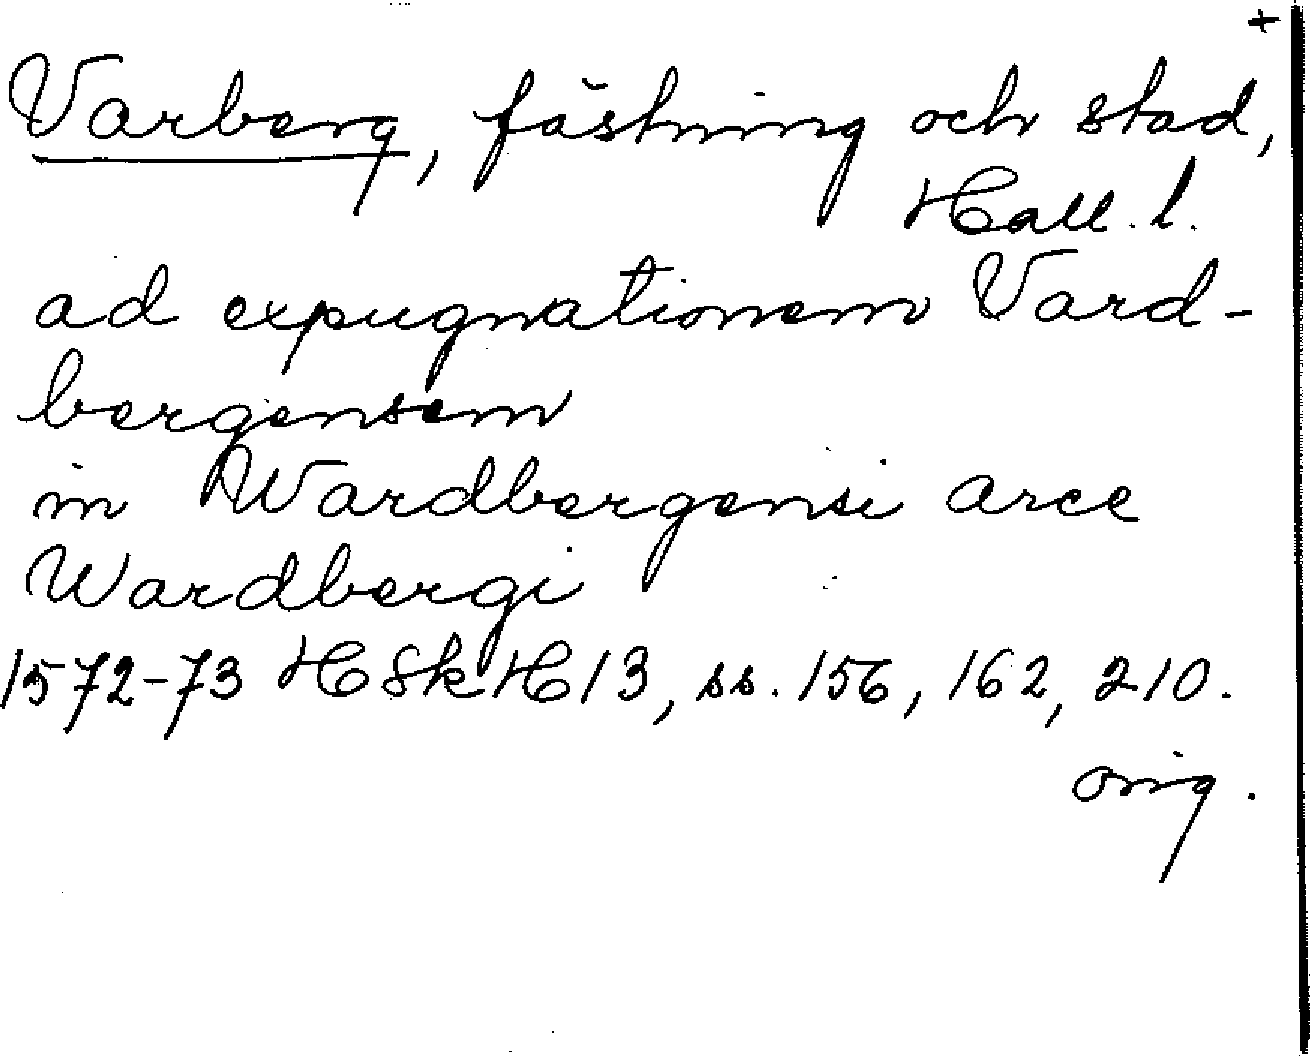 +
Varberg, fästning och stad,
Hall. l.
ad expugnationem Vard-
bergensem
in Wardbergensi arce
Wardbergi
1572-73 HSkH 13, ss. 156, 162, 210.
orig.